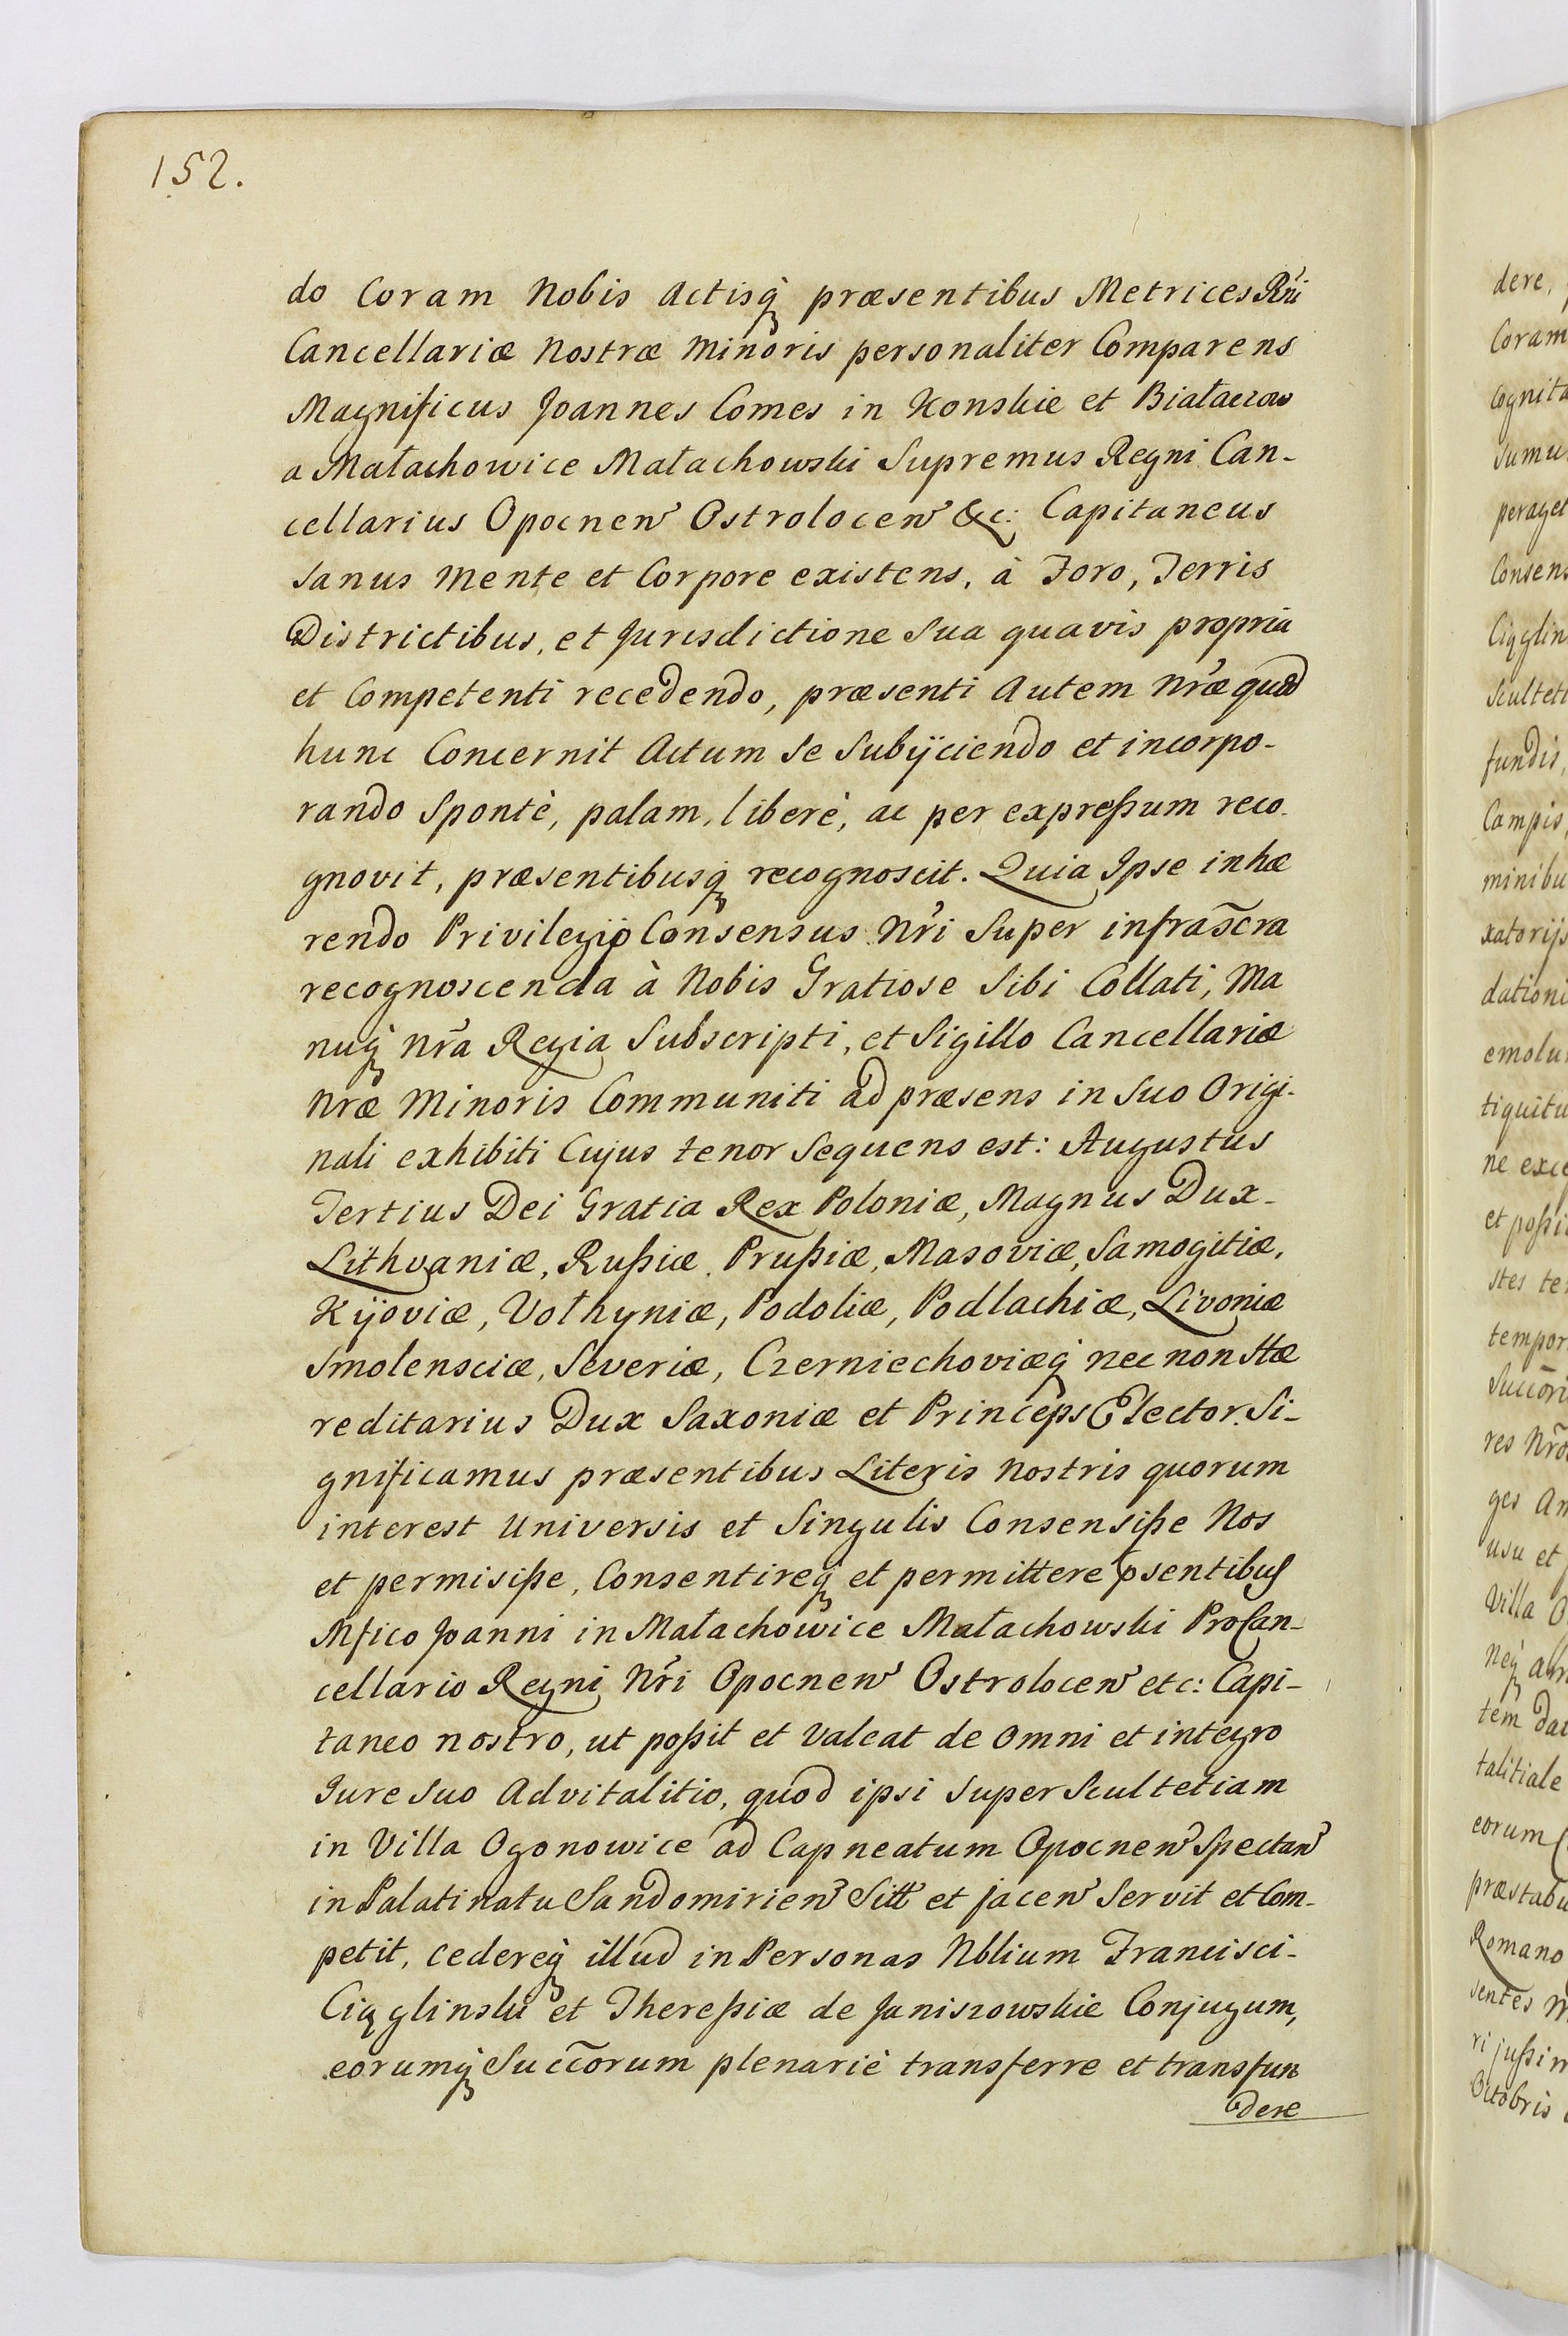 152.
do Coram Nobis Actisq̀ præsentibus Metrices Rñi
Cancellariæ Nostræ Minoris personaliter Comparens
Magnificus Joannes Comes in Konskie et Białaczow
a Małachowice Małachowski Supremus Regni Can-
cellarius Opocnen̄ Ostrolocen̄ &c: Capitaneus
Sanus Mente et Corpore existens, à Foro, Terris
Districtibus, et Jurisdictione Sua quavis propria
et Competenti recedendo, præsenti Autem Nr̃æ quod
hunc Concernit Actum Se Subijciendo et incorpo-
rando Spontè, palam, liberè, ac per expreßum reco-
gnovit, præsentibusq̀ recognoscit. Quia Ipse inhæ
rendo Privilegio Consensus Nr̃i Super infrascr̃a
recognoscenda à Nobis Gratiose Sibi Collati, Ma
nuq̀ Nr̃a Regia Subscripti, et Sigillo Cancellariæ
Nr̃æ Minoris Communiti ad præsens in Suo Origi-
nali exhibiti Cujus tenor Sequens est: Augustus
Tertius Dei Gratia Rex Poloniæ, Magnus Dux-
Lithvaniæ, Rußiæ, Prußiæ, Masoviæ, Samogitiæ,
Kijoviæ, Vołhyniæ, Podoliæ, Podlachiæ, Livoniæ
Smolensciæ, Severiæ, Czerniechoviæq̀ nec non Hæ
reditarius Dux Saxoniæ et Princeps Elector. Si-
gnificamus præsentibus Literis Nostris quorum
interest Universis et Singulis Consensiße Nos
et permisiße, Consentireq̀ et permittere p̃sentibus
Mfico Joanni in Małachowice Małachowski ProCan-
cellario Regni Nr̃i Opocnen̄ Ostrolocen̄ etc: Capi-
taneo nostro, ut poßit et Valeat de Omni et integro
Jure Suo Advitalitio, quod ipsi Super Scultetiam
in Villa Ogonowice ad Capneatum Opocnen̄ Spectan̄
in Palatinatu Sandomirien̄ Sitt̃ et jacen̄ Servit et Com-
petit, cedereq̀ illud in Personas Nblium Francisci-
Ciąglinski et Thereßiæ de Janiszowskie Conjugum,
eorumq̀ Succ̃orum plenariè transferre et transfun
dere
dere,
Coram
Cognita
Sumu
peraget
Consens
Ciąglin
Sculteti
fundis,
Campis,
minibu
xatorijs
dationi
emolu
tiquitu
ne exce
et poßi
stes te
tempor
Succ̃ori
res Nr̃o
ges An
usu et
Villa O
Neq̀
tem dat
talitiale
eorum
præstabu
Romano
sentes
ri jußim
Octobris